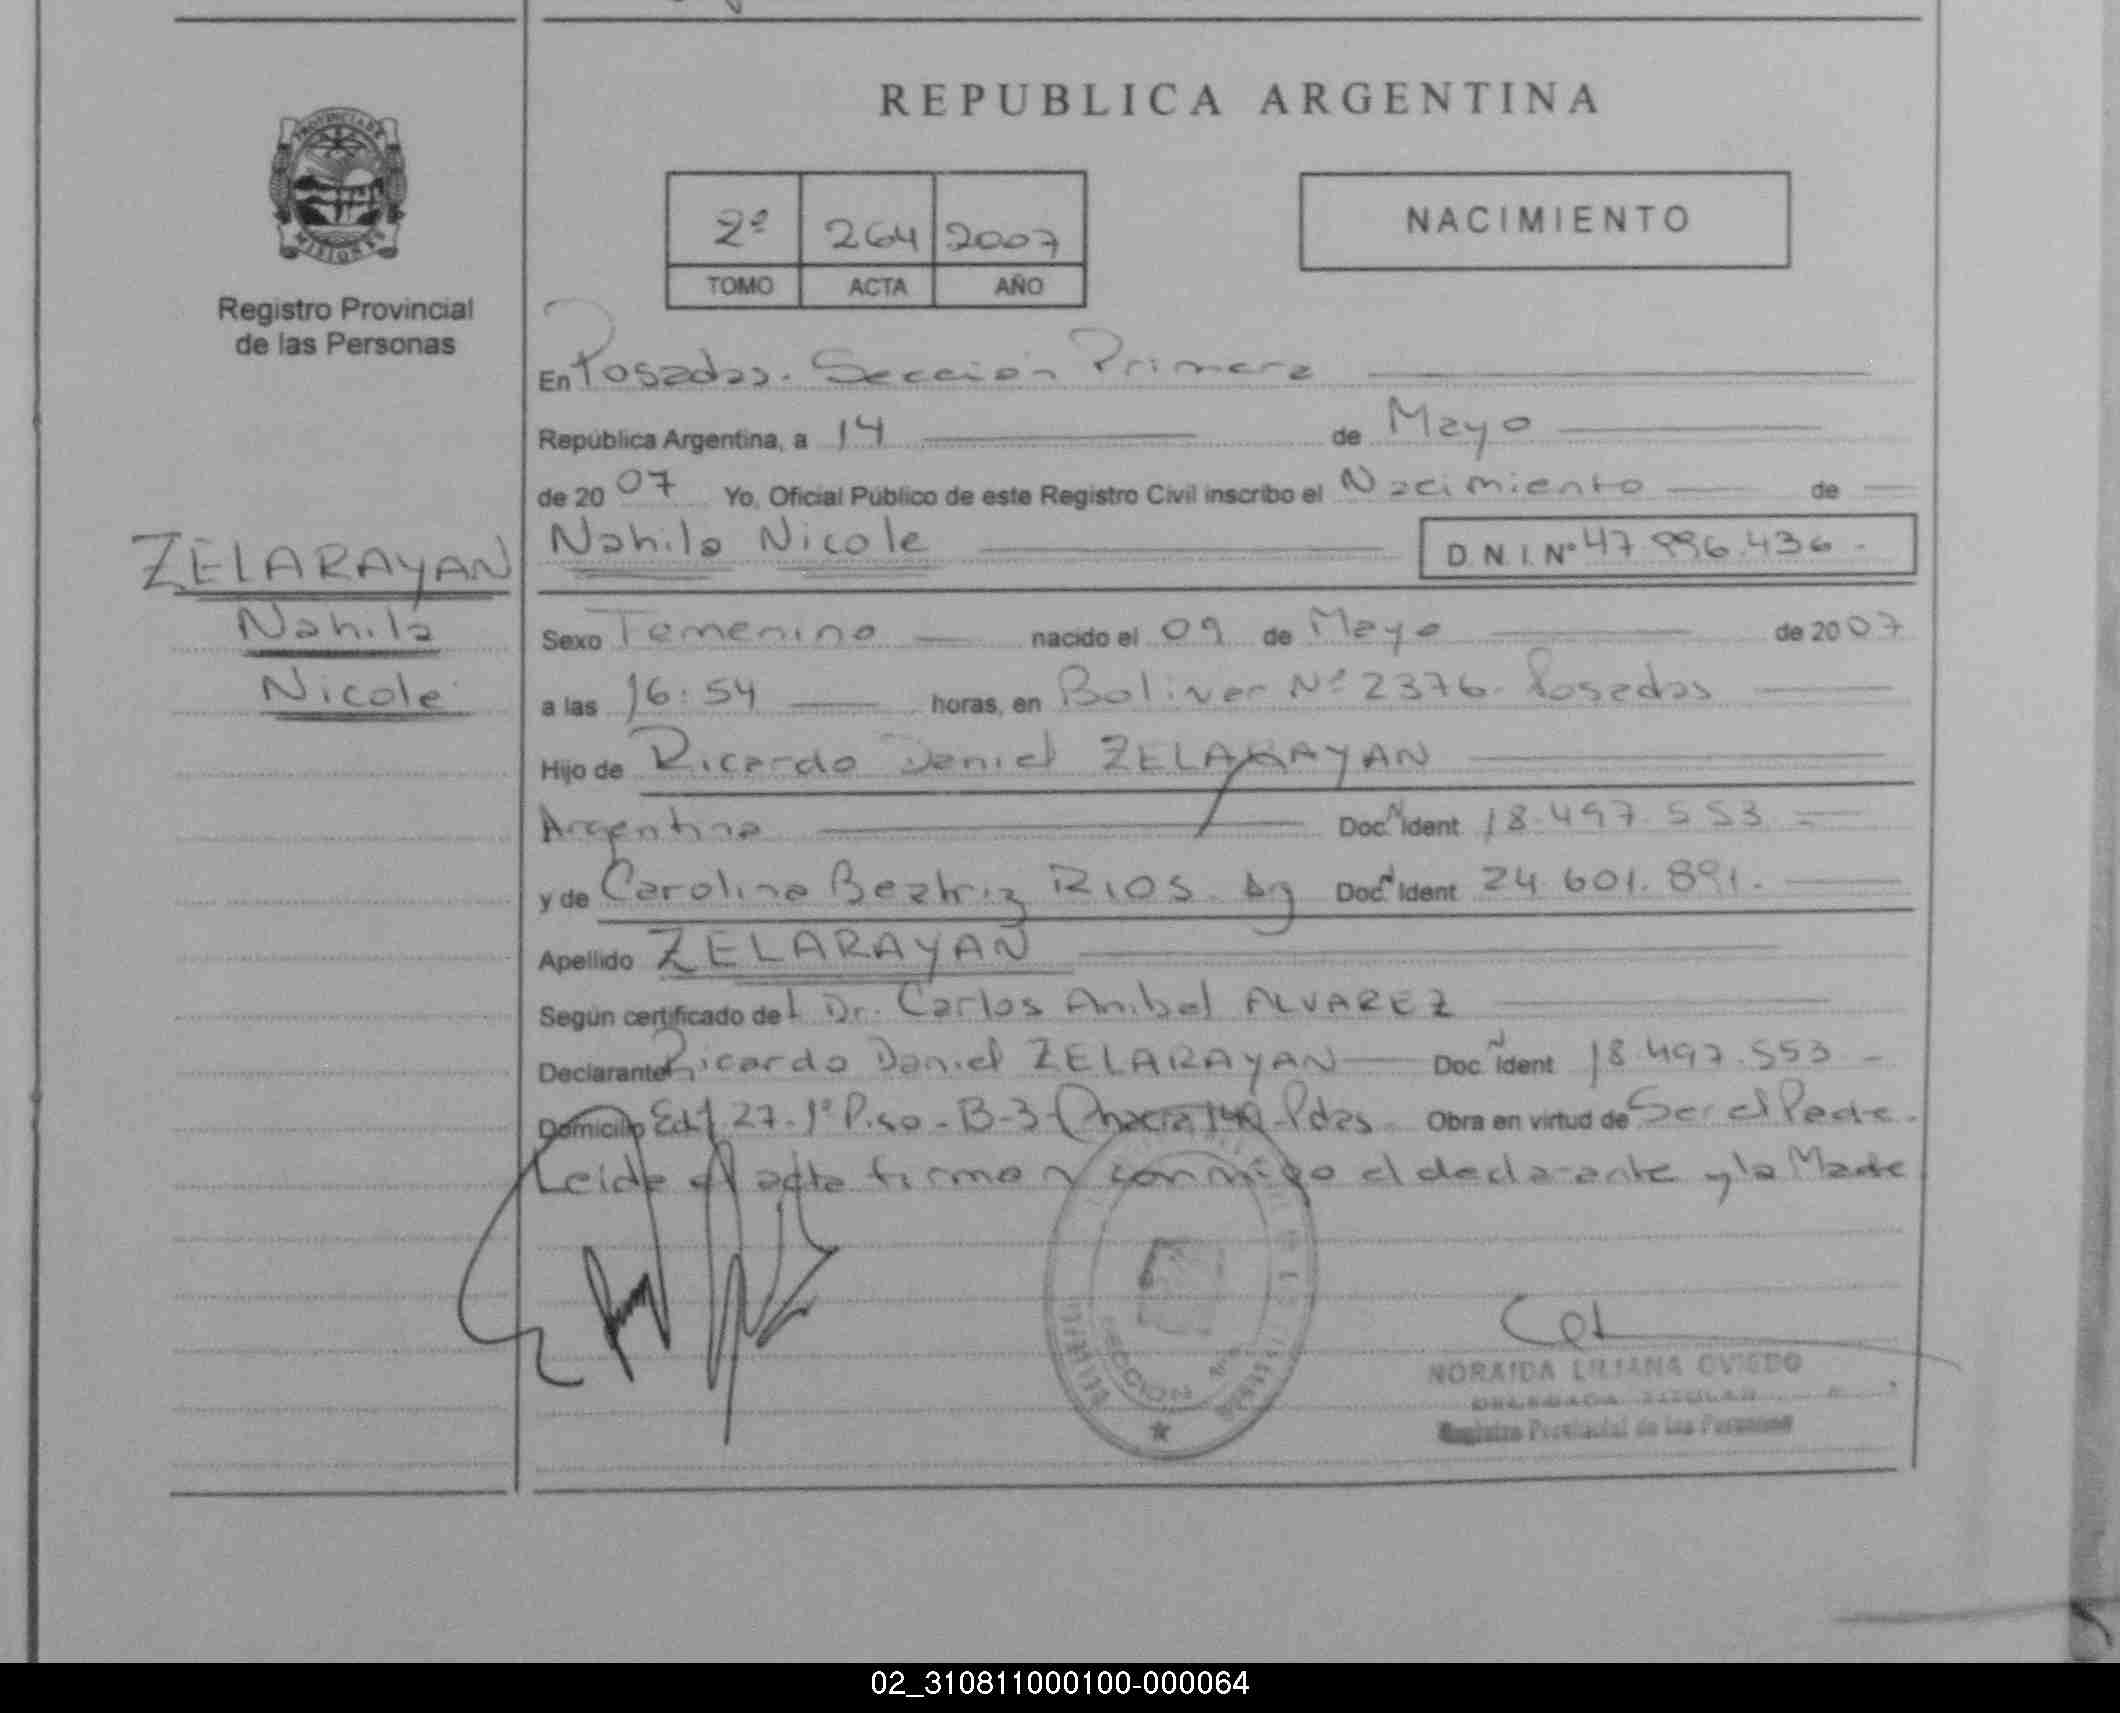 REPUBLICA ARGENTINA
PROVINCIA DE
MISIONES
Registro Provincial
de las Personas
2º 264 2007
TOMO ACTA AÑO
NACIMIENTO
En Posadas. Sección Primera
República Argentina, a 14 de Mayo
de 2007 Yo, Oficial Público de este Registro Civil inscribo el Nacimiento de
ZELARAYAN
Nahila
Nicole
Nahila Nicole D.N.I. Nº 47.996.436.
Sexo Femenino nacido el 09 de Mayo de 2007
a las 16:54 horas, en Bolivar Nº 2376. Posadas
Hijo de Ricardo Daniel ZELARAYAN
Argentina Doc. N Ident 18.497.553
y de Carolina Beatriz RIOS. Ag Doc. N Ident 24.601.891.
Apellido ZELARAYAN
Según certificado del Dr. Carlos Anibal ALVAREZ
Declarante Ricardo Daniel ZELARAYAN Doc. N Ident 18.497.553
Domicilio Edf. 27. 1º Piso - B-3 - Chacra 149 - Pdas. Obra en virtud de Ser el Padre.
Leida el acta firman conmigo el declarante y la Madre
SECCION 1ra
NORAIDA LILIANA OVIEDO
DELEGADA TITULAR
Registro Provincial de las Personas
02_310811000100-000064